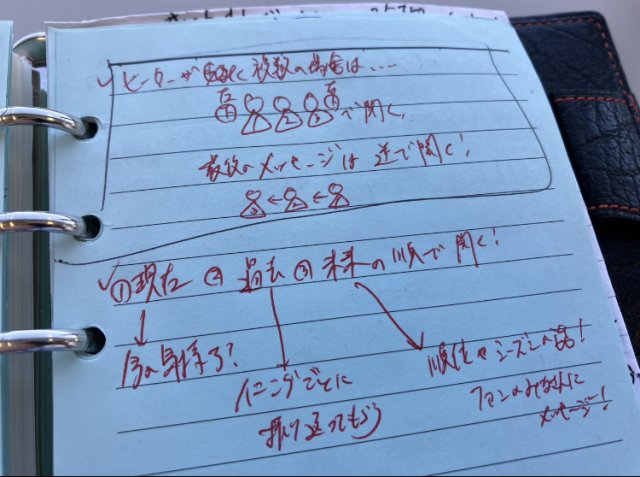 ヒーローが 複数の場合は...
右 1 2 3 左 で聞く。
最後のメッセージは 逆で聞く!
3 ← 2 ← 1
①現在 ② 過去 ③ 未来 の順で 聞く!
今の気持ち?
イニングごとに
振り返ってもらう
順位やシーズンの話!
ファンのみなさんに
メッセージ!